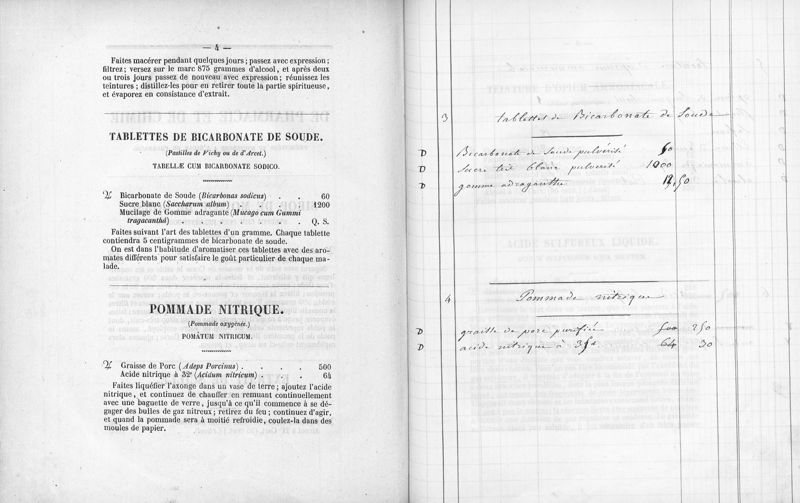 — 4 —
Faites macérer pendant quelques jours ; passez avec expression ;
filtrez ; versez sur le marc 875 grammes d'alcool, et après deux
ou trois jours passez de nouveau avec expression ; réunissez les
teintures ; distillez-les pour en retirer toute la partie spiritueuse,
et évaporez en consistance d'extrait.
TABLETTES DE BICARBONATE DE SOUDE.
(Pastilles de Vichy ou de d'Arcet.)
TABELLÆ CUM BICARBONATE SODICO.
♃ Bicarbonate de Soude (Bicarbonas sodicus) . . 60
Sucre blanc (Saccharum album) . . . . 1200
Mucilage de Gomme adragante (Mucago cum Gummi
tragacanthâ) . . . . . . Q. S.
Faites suivant l'art des tablettes d'un gramme. Chaque tablette
contiendra 5 centigrammes de bicarbonate de soude.
On est dans l'habitude d'aromatiser ces tablettes avec des aro-
mates différents pour satisfaire le goût particulier de chaque ma-
lade.
POMMADE NITRIQUE.
(Pommade oxygénée.)
POMATUM NITRICUM.
♃ Graisse de Porc (Adeps Porcinus) . . . . 500
Acide nitrique à 32° (Acidum nitricum) . . . 64
Faites liquéfier l'axonge dans un vase de terre ; ajoutez l'acide
nitrique, et continuez de chauffer en remuant continuellement
avec une baguette de verre, jusqu'à ce qu'il commence à se dé-
gager des bulles de gaz nitreux ; retirez du feu ; continuez d'agir,
et quand la pommade sera à moitié refroidie, coulez-la dans des
moules de papier.
3 Tablettes de Bicarbonate de Soude
D Bicarbonate de Soude pulvérisé 60
D Sucre très blanc pulvérisé
D gomme adraganthe
4 Pommade nitrique
D graisse de porc purifiée 500 250
D acide nitrique à 64 30